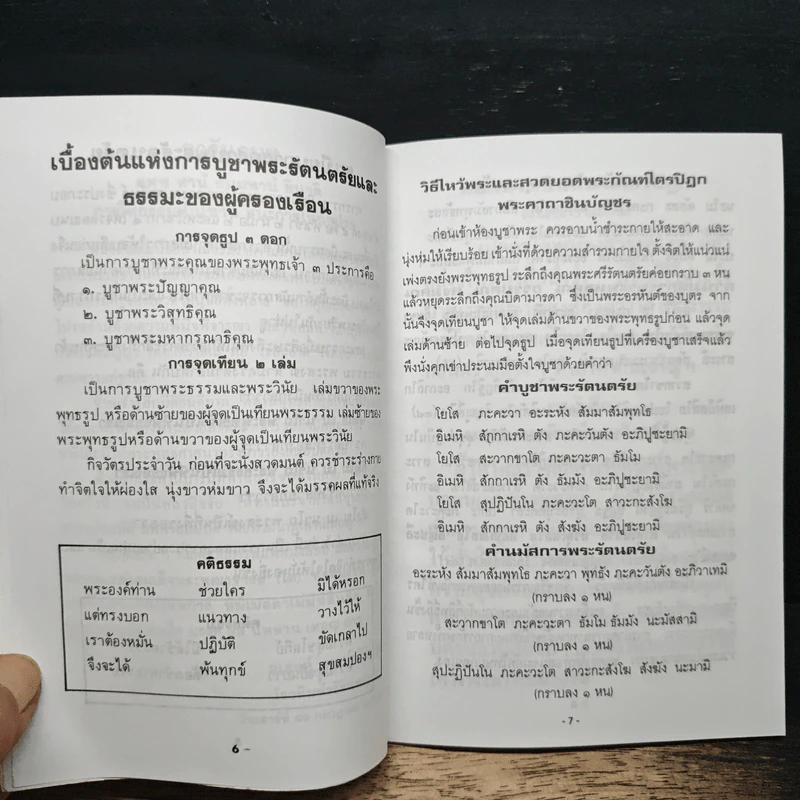 เบื้องต้นแห่งการบูชาพระรัตนตรัยและ
ธรรมะของผู้ครองเรือน
การจุดธูป ๓ ดอก
เป็นการบูชาพระคุณของพระพุทธเจ้า ๓ ประการคือ
๑. บูชาพระปัญญาคุณ
๒. บูชาพระวิสุทธิคุณ
๓. บูชาพระมหากรุณาธิคุณ
การจุดเทียน ๒ เล่ม
เป็นการบูชาพระธรรมและพระวินัย เล่มขวาของพระ
พุทธรูป หรือด้านซ้ายของผู้จุดเป็นเทียนพระธรรม เล่มซ้ายของ
พระพุทธรูปหรือด้านขวาของผู้จุดเป็นเทียนพระวินัย
กิจวัตรประจำวัน ก่อนที่จะนั่งสวดมนต์ ควรชำระร่างกาย
ทำจิตใจให้ผ่องใส นุ่งขาวห่มขาว จึงจะได้มรรคผลที่แท้จริง
คติธรรม
พระองค์ท่าน ช่วยใคร มิได้หรอก
แต่ทรงบอก แนวทาง วางไว้ให้
เราต้องหมั่น ปฏิบัติ ขัดเกลาไป
จึงจะได้ พ้นทุกข์ สุขสมปองฯ
6 –
วิธีไหว้พระและสวดยอดพระกัณฑ์ไตรปิฎก
พระคาถาชินบัญชร
ก่อนเข้าห้องบูชาพระ ควรอาบน้ำชำระกายให้สะอาด และ
นุ่งห่มให้เรียบร้อย เข้านั่งที่ด้วยความสำรวมกายใจ ตั้งจิตให้แน่วแน่
เพ่งตรงยังพระพุทธรูป ระลึกถึงคุณพระศรีรัตนตรัยค่อยกราบ ๓ หน
แล้วหยุดระลึกถึงคุณบิดามารดา ซึ่งเป็นพระอรหันต์ของบุตร จาก
นั้นจึงจุดเทียนบูชา ให้จุดเล่มด้านขวาของพระพุทธรูปก่อน แล้วจุด
เล่มด้านซ้าย ต่อไปจุดธูป เมื่อจุดเทียนธูปที่เครื่องบูชาเสร็จแล้ว
พึงนั่งคุกเข่าประนมมือตั้งใจบูชาด้วยคำว่า
คำบูชาพระรัตนตรัย
โยโส ภะคะวา อะระหัง สัมมาสัมพุทโธ
อิเมหิ สักกาเรหิ ตัง ภะคะวันตัง อะภิปูชะยามิ
โยโส สะวากขาโต ภะคะวะตา ธัมโม
อิเมหิ สักกาเรหิ ตัง ธัมมัง อะภิปูชะยามิ
โยโส สุปฏิปันโน ภะคะวะโต สาวะกะสังโฆ
อิเมหิ สักกาเรหิ ตัง สังฆัง อะภิปูชะยามิ
คำนมัสการพระรัตนตรัย
อะระหัง สัมมาสัมพุทโธ ภะคะวา พุทธัง ภะคะวันตัง อะภิวาเทมิ
(กราบลง ๑ หน)
สะวากขาโต ภะคะวะตา ธัมโม ธัมมัง นะมัสสามิ
(กราบลง ๑ หน)
สุปะฏิปันโน ภะคะวะโต สาวะกะสังโฆ สังฆัง นะมามิ
(กราบลง ๑ หน)
- 7 -